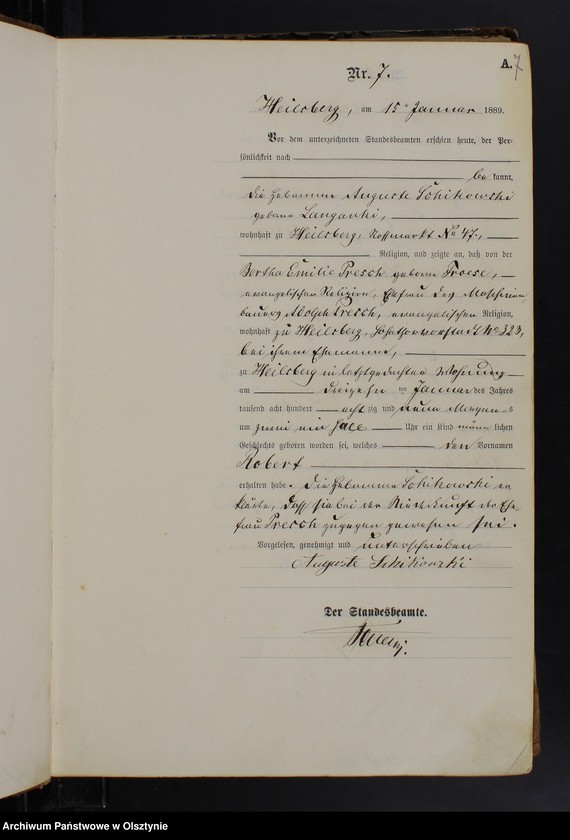 A. 7
Nr. 7.
Heilsberg, am 15n Januar 1889.
Vor dem unterzeichneten Standesbeamten erschien heute, der Per-
sönlichkeit nach
be kannt,
die Hebamme Auguste Schikowski
geborne Langanki,
wohnhaft zu Heilsberg, Rossmarkt No 47,
Religion, und zeigte an, daß von der
Bertha Emilie Presch geborne Froese,
evangelischer Religion, Ehefrau des Maschinen
bauers Adolph Presch, evangelischer Religion,
wohnhaft zu Heilsberg, No 323,
bei ihrem Ehemanne,
zu Heilsberg in letztgedachter Wohnung
am dreizehn ten Januar des Jahres
tausend acht hundert acht zig und neun Morgens
um ein halb Uhr ein Kind männ lichen
Geschlechts geboren worden sei, welches den Vornamen
Robert
erhalten habe. Die Hebamme Schikowski er
klärte, daß sie bei der Niederkunft der Ehe-
frau Presch zugegen gewesen sei.
Vorgelesen, genehmigt und unterschrieben
Auguste Schikowski
Der Standesbeamte.
Archiwum Państwowe w Olsztynie